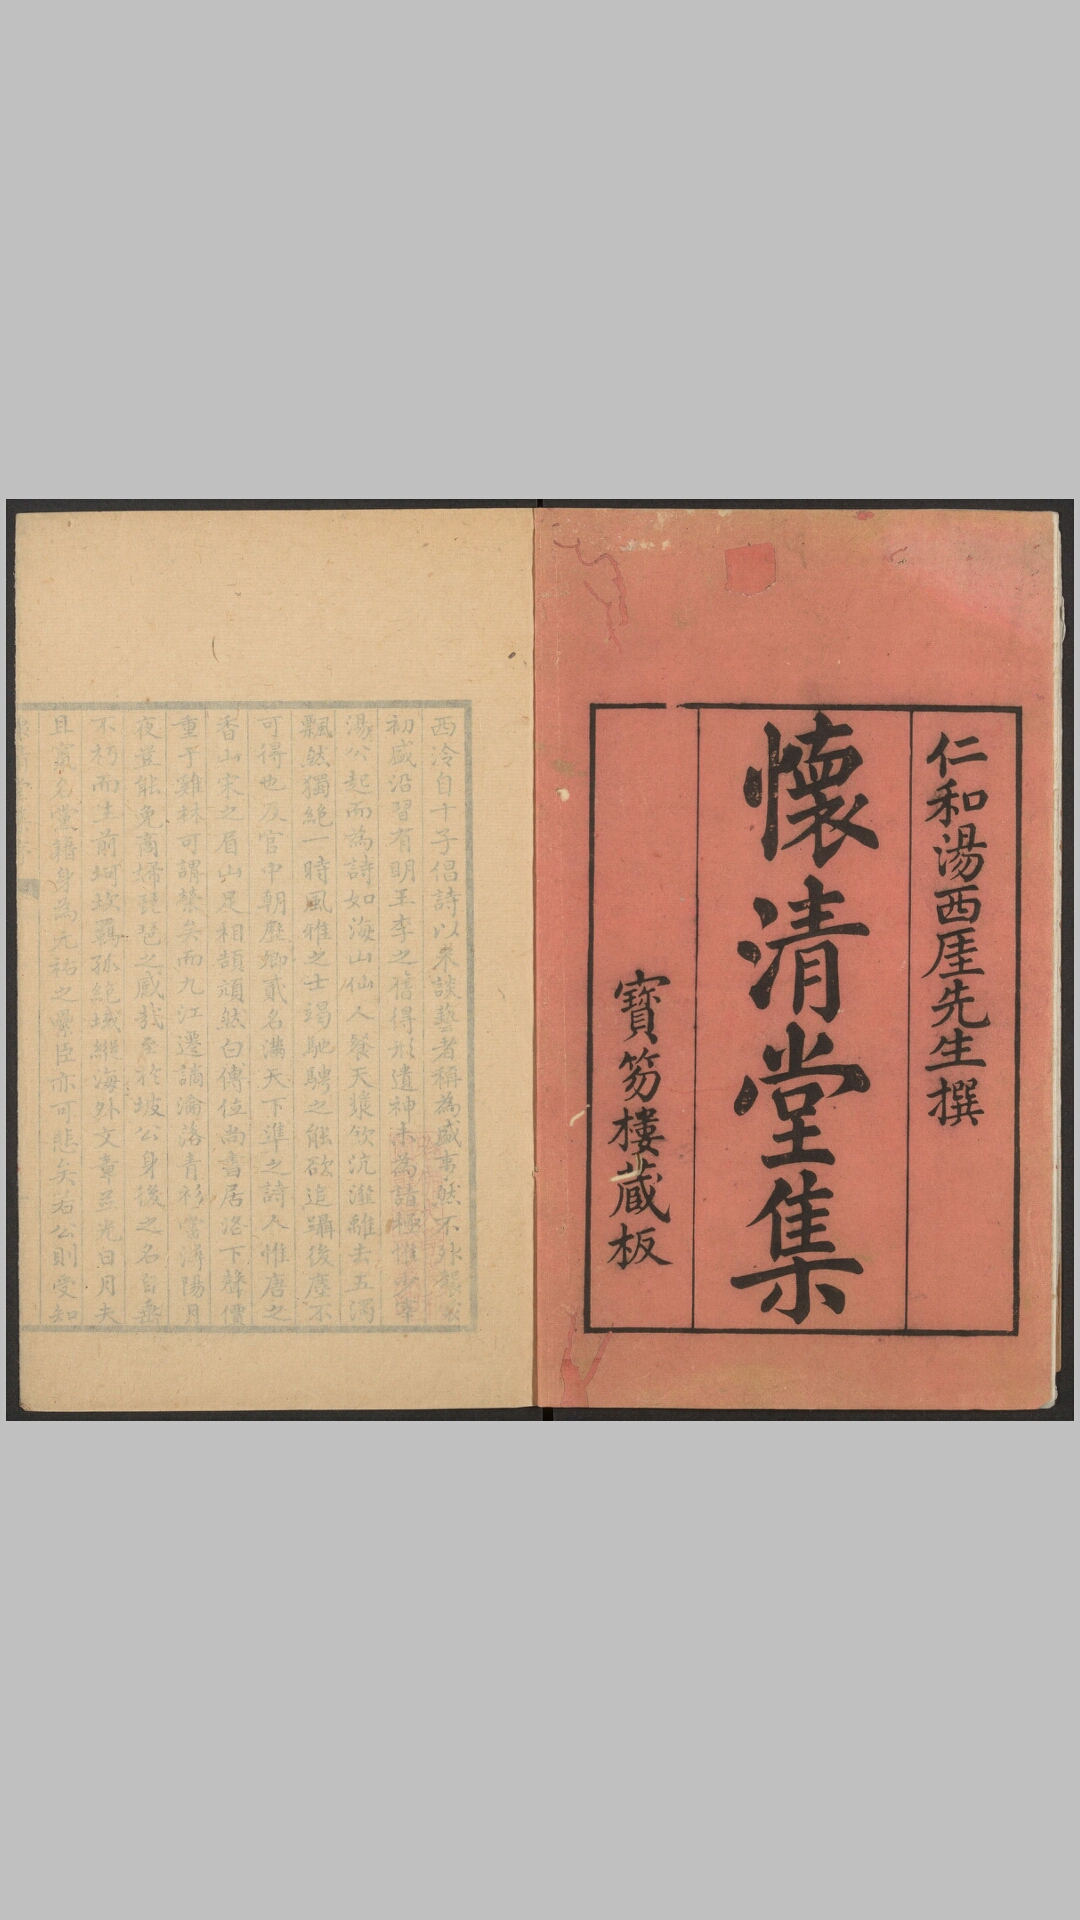 仁和湯西厓先生撰
懷清堂集
寶笏樓藏板
西泠自十子倡詩以來談藝者稱為盛事然不
初盛沿習有明王李之舊得形遺神未為詣極惟少宰
湯公起而為詩如海山仙人餐天漿飲沆瀣離去五濁
飄然獨絕一時風雅之士竭馳騁之能欲追躡後塵不
可得也及官中朝歷卿貳名滿天下準之詩人惟唐之
香山宋之眉山足相頡頏然白傅位尚書居洛下聲價
重于雞林可謂榮矣而九江遷謫淪落青衫當潯陽月
夜豈能免商婦琵琶之感哉至於坡公身後之名自垂
不朽而生前坷坎羈孤絕域縱海外文章並光日月夫
且竄名黨籍身為元祐之纍臣亦可悲矣若公則受知